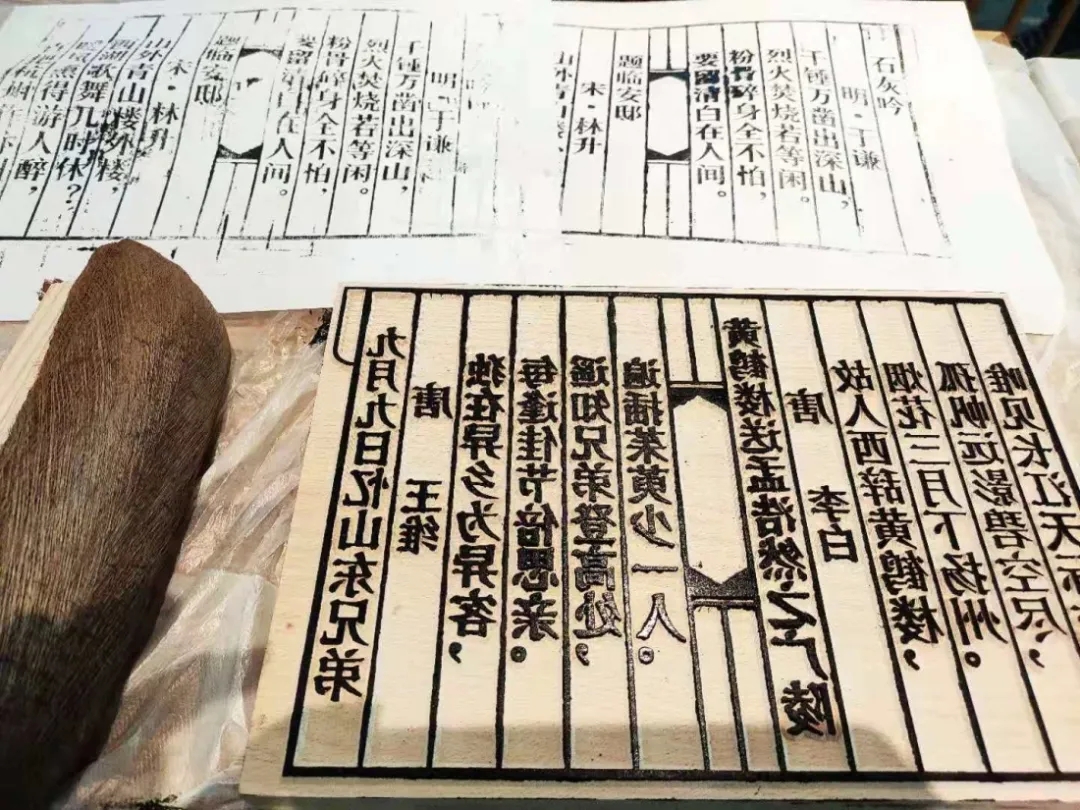 石灰吟
明·于谦
千锤万凿出深山，
烈火焚烧若等闲。
粉骨碎身全不怕，
要留清白在人间。
题临安邸
宋·林升
山外青山楼
明·于谦
千锤万凿出深山，
烈火焚烧若等闲。
粉骨碎身全不怕，
要留清白在人间。
题临安邸
宋·林升
山外青山楼外楼，
西湖歌舞几时休？
暖风熏得游人醉，
九月九日忆山东兄弟
唐 王维
独在异乡为异客，
每逢佳节倍思亲。
遥知兄弟登高处，
遍插茱萸少一人。
黄鹤楼送孟浩然之广陵
唐 李白
故人西辞黄鹤楼，
烟花三月下扬州。
孤帆远影碧空尽，
唯见长江天